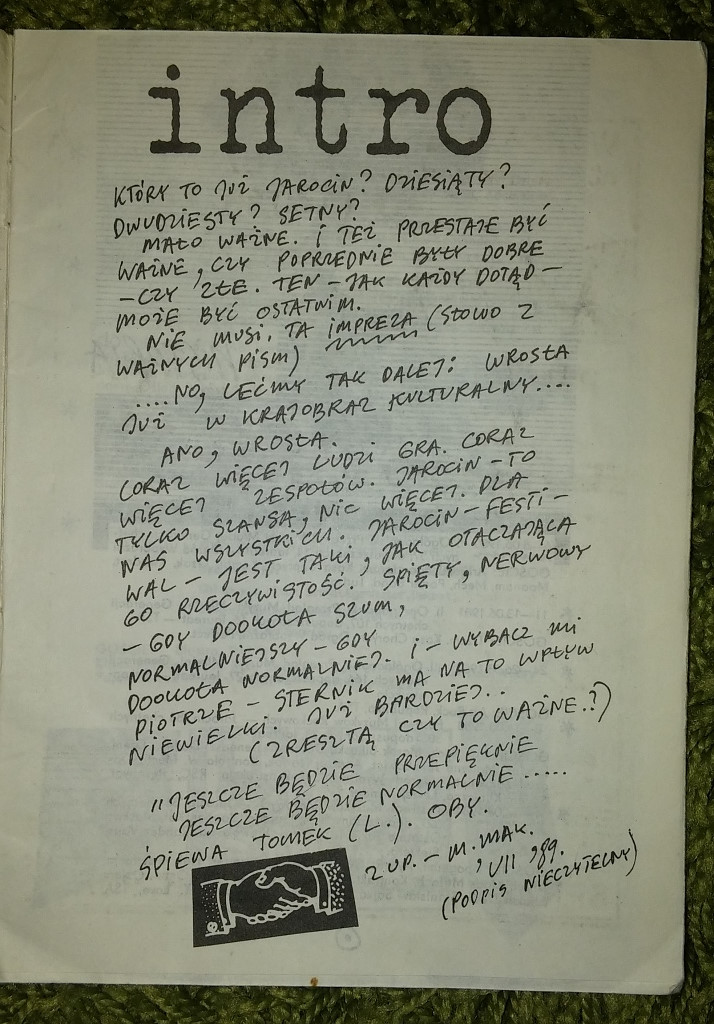 intro
KTÓRY TO JUŻ JAROCIN? DZIESIĄTY?
DWUDZIESTY? SETNY?
MAŁO WAŻNE. I TEŻ PRZESTAJE BYĆ
WAŻNE, CZY POPRZEDNIE BYŁY DOBRE
– CZY ZŁE. TEN – JAK KAŻDY DOTĄD –
MOŻE BYĆ OSTATNIM.
NIE MUSI. TA IMPREZA (SŁOWO Z
WAŻNYCH PISM)
....NO, LEĆMY TAK DALEJ: WROSŁA
JUŻ W KRAJOBRAZ KULTURALNY....
ANO, WROSŁA.
CORAZ WIĘCEJ LUDZI GRA. CORAZ
WIĘCEJ ZESPOŁÓW. JAROCIN – TO
TYLKO SZANSA, NIC WIĘCEJ. DLA
NAS WSZYSTKICH. JAROCIN – FESTI–
WAL – JEST TAKI, JAK OTACZAJĄCA
GO RZECZYWISTOŚĆ. SPIĘTY, NERWOWY
– GDY DOOKOŁA SZUM,
NORMALNIEJSZY – GDY
DOOKOŁA NORMALNIEJ. I – WYBACZ MI
PIOTRZE – STERNIK MA NA TO WPŁYW
NIEWIELKI. JUŻ BARDZIEJ..
(ZRESZTĄ CZY TO WAŻNE.?)
"JESZCZE BĘDZIE PRZEPIĘKNIE
JESZCZE BĘDZIE NORMALNIE.....
ŚPIEWA TOMEK (L.). OBY.
Z UP. – M. MAK.
, VII , 89.
(PODPIS NIECZYTELNY)